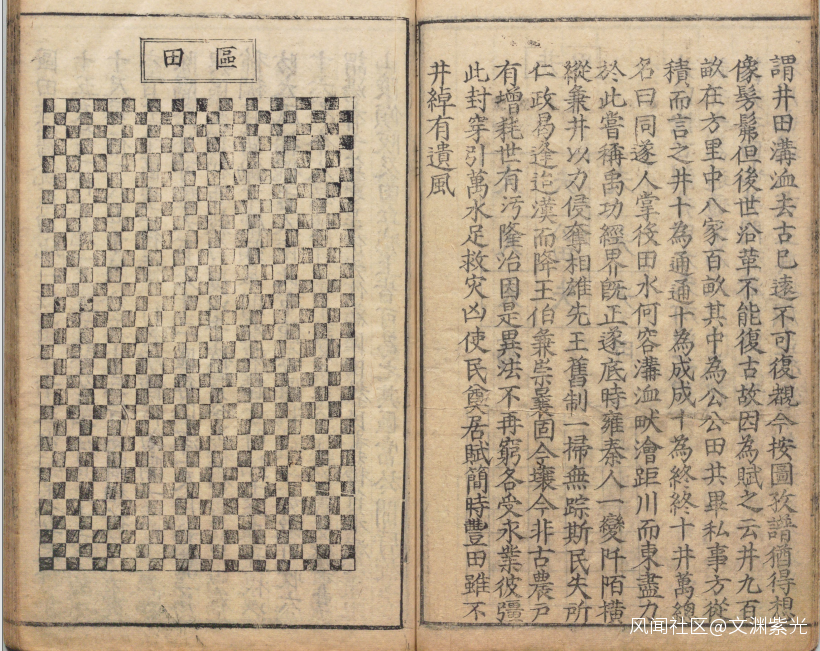 謂井田溝洫去古已遠不可復覩今按圖攷譜猶得想
像髣髴但後世沿革不能復古故因為賦之云井九百
畝在方里中八家百畝其中為公公田共畢私事方從
積而言之井十為通通十為成成十為終終十井萬總
名曰同遂人掌役田水何容溝洫畎澮距川而東盡力
於此嘗稱禹功經界既正遂底時雍秦人一變阡陌橫
縱兼井以力侵奪相雄先王舊制一掃無踪斯民失所
仁政曷逢迨漢而降王伯兼崇曩固今壤今非古農戸
有增耗世有汚隆治因是異法不再窮各受永業彼疆
此封穿引萬水足救灾凶使民奠居賦簡時豐田雖不
井綽有遺風
區田
风闻社区@文渊紫光